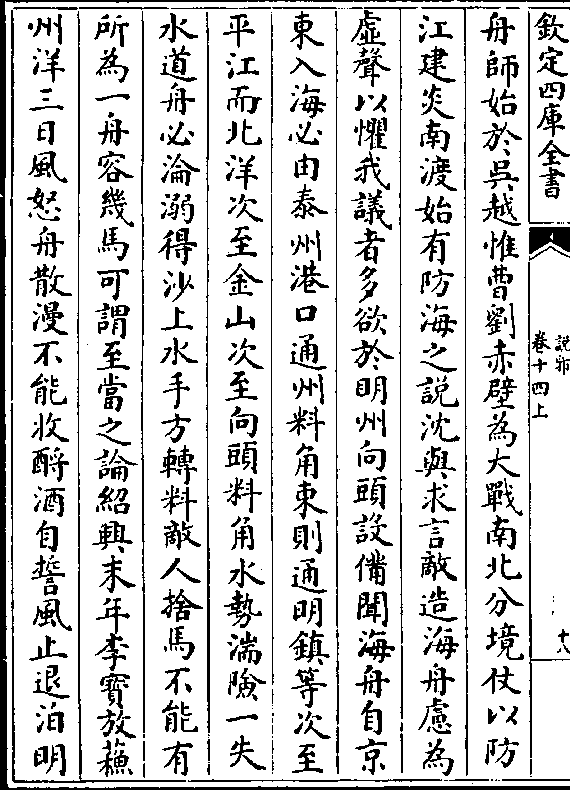 欽定四庫全書
說郛
卷十四上
十八
舟師始於吳越惟曹劉赤壁為大戰南北分境仗以防
江建炎南渡始有防海之說沈與求言敵造海舟慮為
虛聲以懼我議者多欲於明州向頭設備聞海舟自京
東入海必由泰州港口通州料角東則通明鎮等次至
平江而北洋次至金山次至向頭料角水勢湍險一失
水道舟必淪溺得沙上水手方轉料敵人捨馬不能有
所為一舟容幾馬可謂至當之論紹興末年李寳放蘓
州洋三日風怒舟散漫不能收酹酒自誓風止退泊明